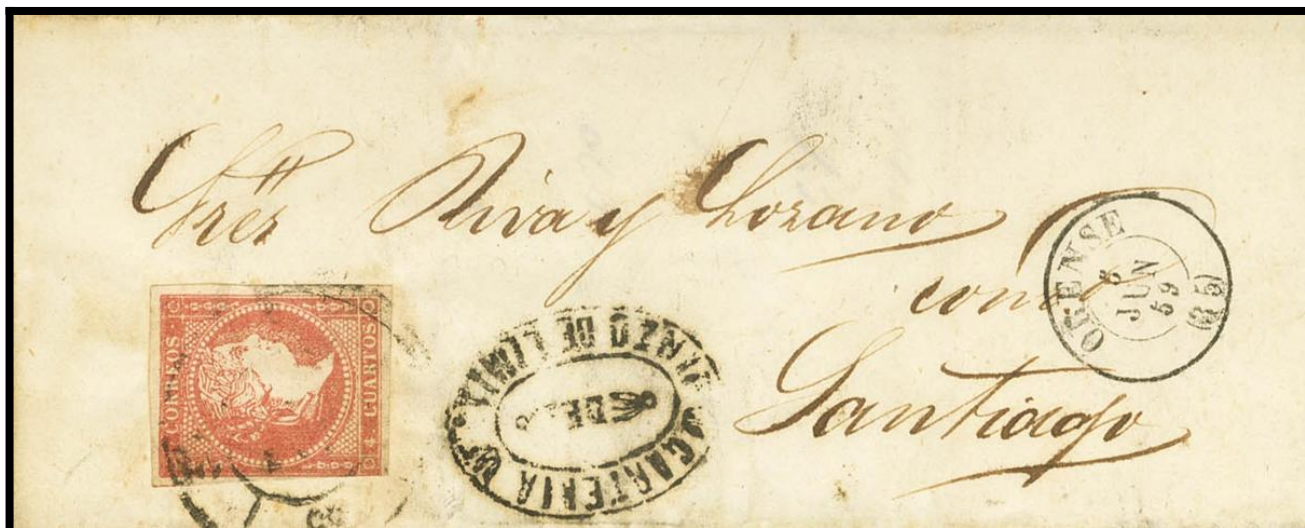 Sres Riva y Lozano
como
Santiago
CORREOS
4 CUARTOS
CARTERIA DE
JINZO DE LIMIA
ORENSE
8
JUN
59
(35)